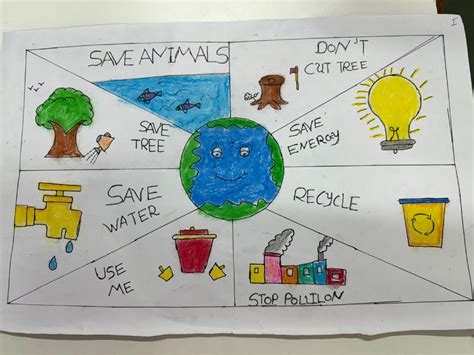 I
SAVE ANIMALS
DON'T
CUT TREE
SAVE
TREE
SAVE
ENERGY
SAVE
WATER
RECYCLE
USE
ME
STOP POLLILON